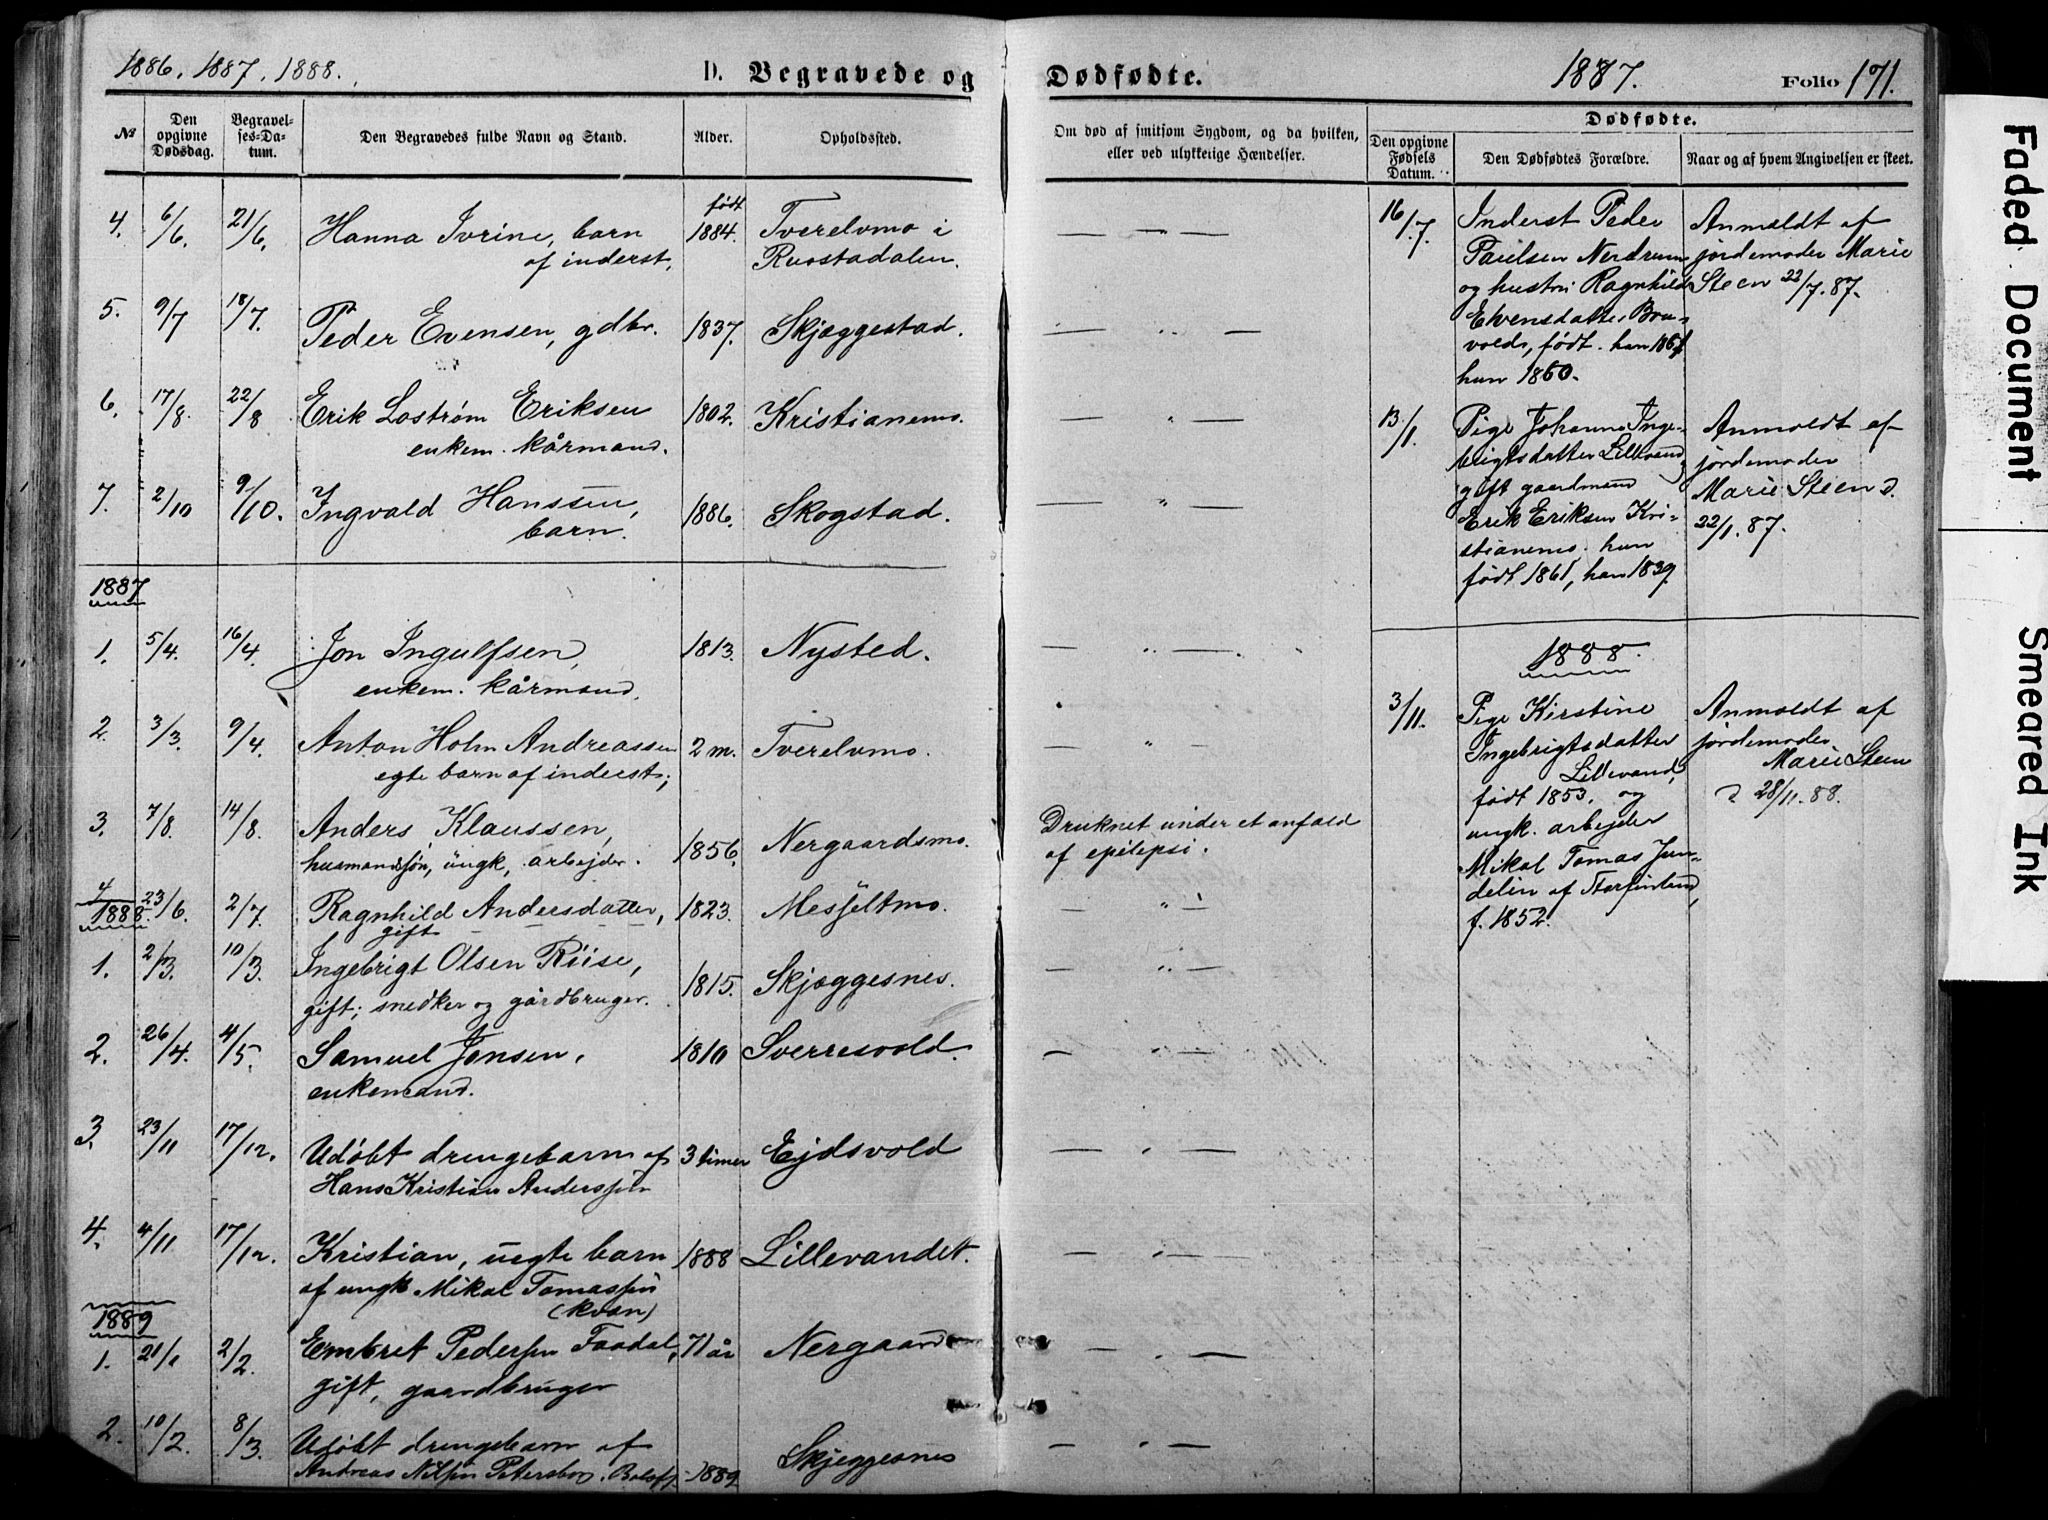 1886, 1887, 1888.
D. Begravede og Dødfødte.
1887.
Folio 171.
№
Den opgivne Dødsdag.
Begravelses-Datum.
Den Begravedes fulde Navn og Stand.
Alder.
Opholdssted.
Om død af smitsom Sygdom, og da hvilken, eller ved ulykkelige Hændelser.
Dødfødte.
Den opgivne Fødsels Datum.
Den Dødfødtes Forældre.
Naar og af hvem Angivelsen er skeet.
4. 6/6. 21/6. Hanna Ivrine, barn født 1884. Tverelvmo i
af inderst, Ruostadalen.
5. 9/7 18/7. Peder Evensen, gdbr. 1837. Skjæggestad.
6. 17/8. 22/8 Erik Lostrøm Eriksen 1802. Kristianemo.
enkem. kårmand.
7. 2/10 9/10. Ingvald Hanssen, 1886. Skogstad.
barn.
1887
1. 5/4. 16/4. Jon Ingulfsen, 1813. Nysted.
enkem. kårmand.
2. 3/3. 9/4. Anton Holm Andreassen 2 m. Tverelvmo.
egte barn af inderst;
3. 7/8. 14/8. Anders Klaussen, 1856. Nergaardsmo. Druknet under et anfald
husmandssøn, ungk, arbejder. af epilepsi.
4 23/6. 2/7. Ragnhild Andersdatter, 1823. Messeltmo.
1888. gift
1. 2/3. 10/3. Ingebrigt Olsen Riise, 1815. Skjæggesnes.
gift; snedker og gårdbruger.
2. 26/4. 4/5. Samuel Jonsen, 1810 Sverresvold.
enkemand.
3. 23/11 17/12. Udøbt drengebarn af 3 timer Ejdsvold
Hans Kristian Anderssen
4. 4/11 17/12. Kristian, uegte barn 1888 Lillevandet.
af ungk Mikal Tomassen
(kvæn)
1889
1. 21/1 2/2. Embret Pedersen Faadal, 71 år Nergaard
gift, gaardbruger
2. 10/2. 8/3. Udøbt drengebarn af 1889 Skjeggesnes
Andreas Nilsen
16/7. Inderst Peder
Paulsen Nerdrum
og hustru Ragnhild
Ehvensdatter Bru-
vold, født han 1861
hun 1860.
Anmeldt af
jordemoder Marie
Steen 22/7. 87.
13/1. Pige Johanne Inge-
brigtsdatter Lillevand,
gift gaardmand
Erik Eriksen Kri-
stianemo. hun
født 1861, han 1839.
Anmeldt af
jordemoder
Marie Steen d.
22/1. 87.
1888.
3/11. Pige Kirstine
Ingebrigtsdatter
Lillevand,
født 1853. og
ungk. arbejder
Mikal Tomas Jun-
delin af Storfinland,
f. 1852.
Anmeldt af
jordemoder
Marie Steen
d 28/11. 88.
Faded Document
Smeared Ink